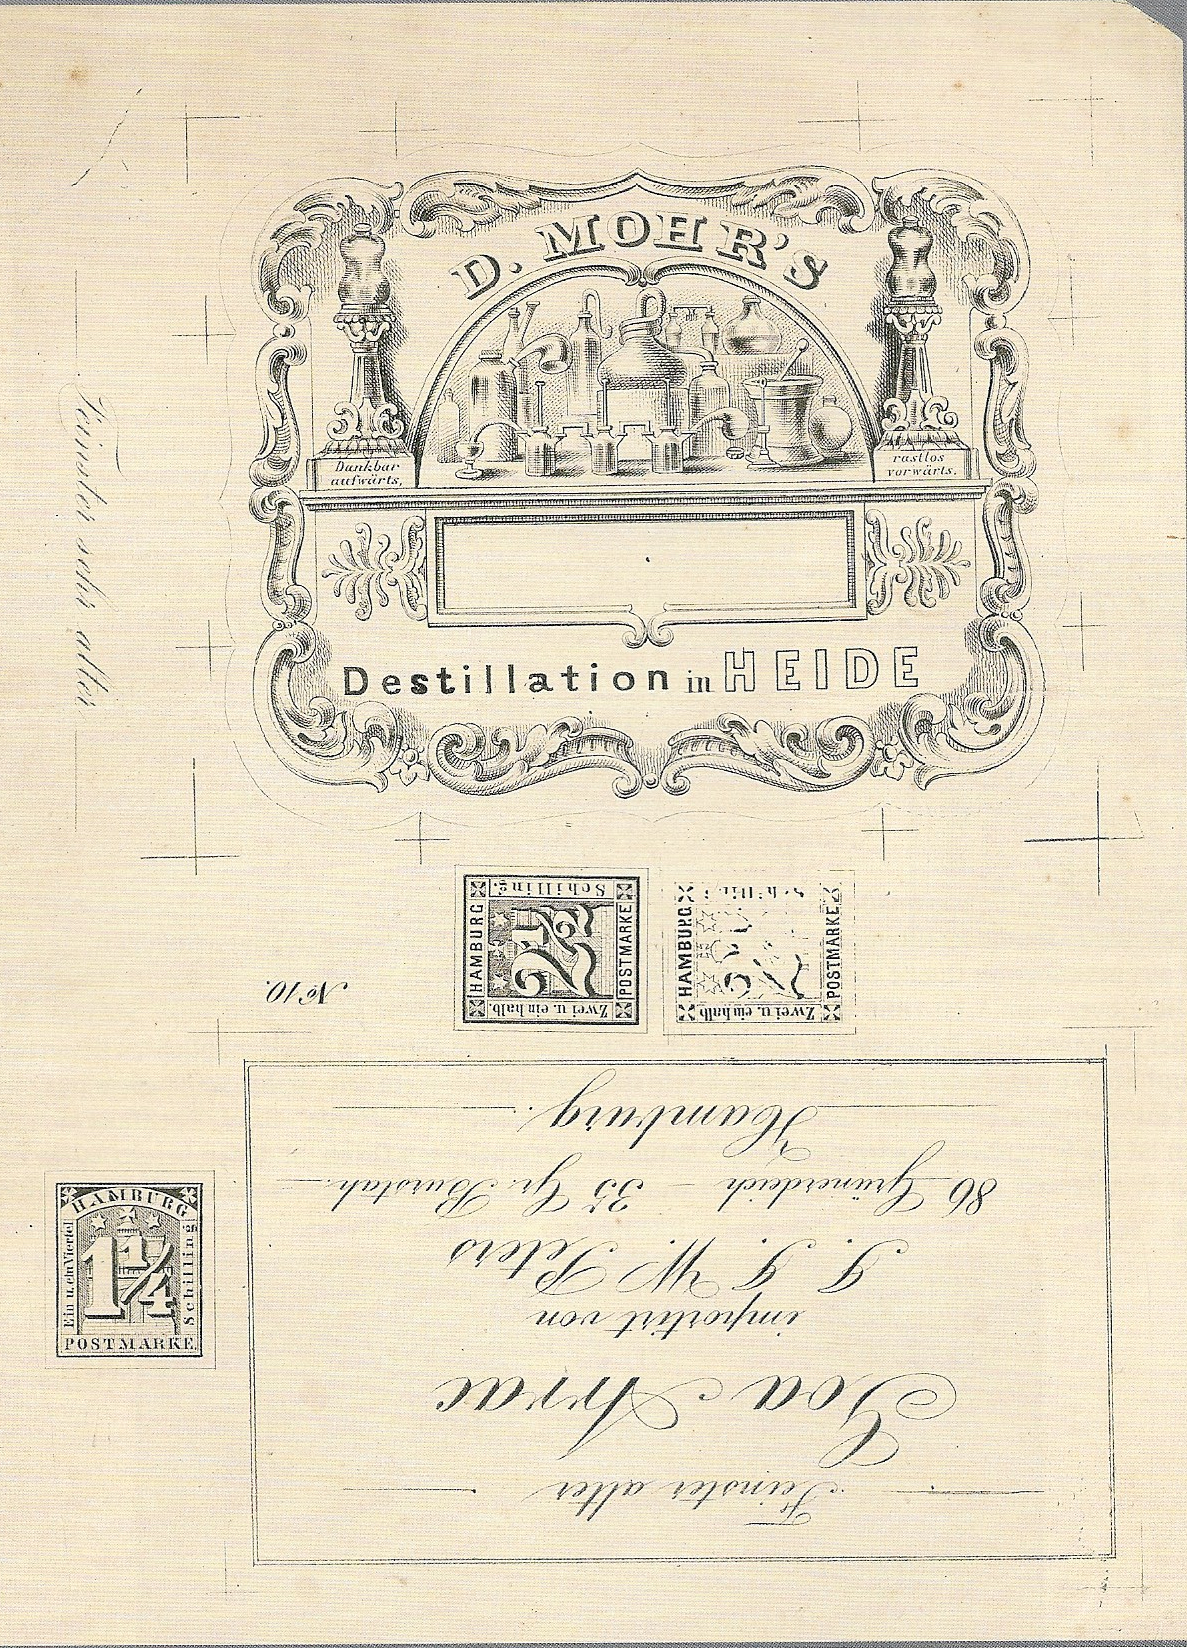 D. MOHR'S
Dankbar
aufwärts,
rastlos
vorwärts.
Destillation in HEIDE
Feinster sehr alter
HAMBURG
Schilling.
2½
POSTMARKE
Zwei u. ein halb.
HAMBURG
POSTMARKE
Zwei u. ein halb
№ 10.
HAMBURG
Ein u. ein Viertel
1¼
Schilling
POSTMARKE
Feinster alter
Goa Arrac
importirt von
J. J. W. Peters
86 Grünerdeich — 35 Gr. Burstah.
Hamburg.